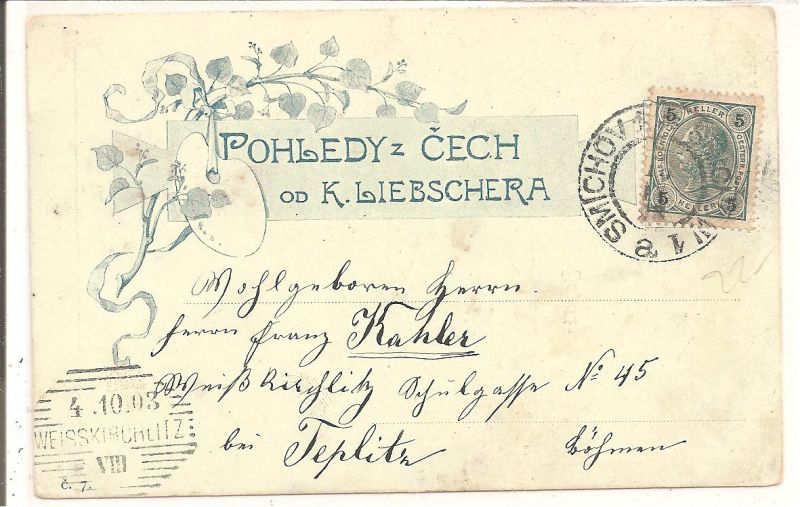 POHLEDY z ČECH
OD K. LIEBSCHERA
5 HELLER 5
5 HELLER 5
SMÍCHOV 1
Wohlgeboren Herrn.
Herrn Franz Kahler
Weißkirchlitz Schulgasse No 45
bei Teplitz Böhmen
4.10.03
WEISSKIRCHLITZ
VIII
č. 7.